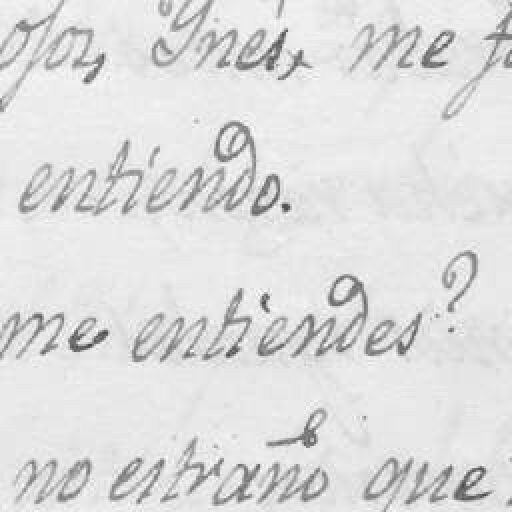 Ynés, me
entiendo.
me entiendes?
no estraño que